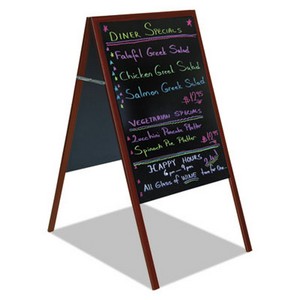 DINER SPECIALS
Falafel Greek Salad
Chicken Greek Salad
Salmon Greek Salad
VEGETARIAN SPECIALS
Zucchini Pancake Platter
Spinach Pie Platter
HAPPY HOURS
6 pm - 9 pm
All Glass of WINE two for One